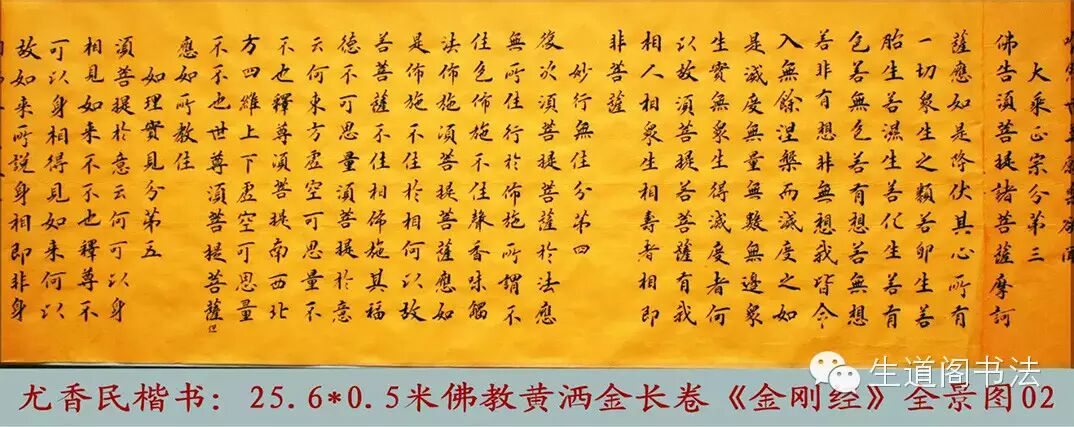 大乘正宗分第三
佛告須菩提諸菩薩摩訶
薩應如是降伏其心所有
一切衆生之類若卵生若
胎生若濕生若化生若有
色若無色若有想若無想
若非有想非無想我皆令
入無餘涅槃而滅度之如
是滅度無量無數無邊衆
生實無衆生得滅度者何
以故須菩提若菩薩有我
相人相衆生相壽者相即
非菩薩
妙行無住分第四
復次須菩提菩薩於法應
無所住行於佈施所謂不
住色佈施不住聲香味觸
法佈施須菩提菩薩應如
是佈施不住於相何以故
若菩薩不住相佈施其福
德不可思量須菩提於意
云何東方虛空可思量不
不也釋尊須菩提南西北
方四維上下虛空可思量
不不也世尊須菩提菩薩但
應如所教住
如理實見分第五
須菩提於意云何可以身
相見如来不不也釋尊不
可以身相得見如来何以
故如来所説身相即非身
生道阁书法
尤香民楷书：25.6*0.5米佛教黄洒金长卷《金刚经》全景图02